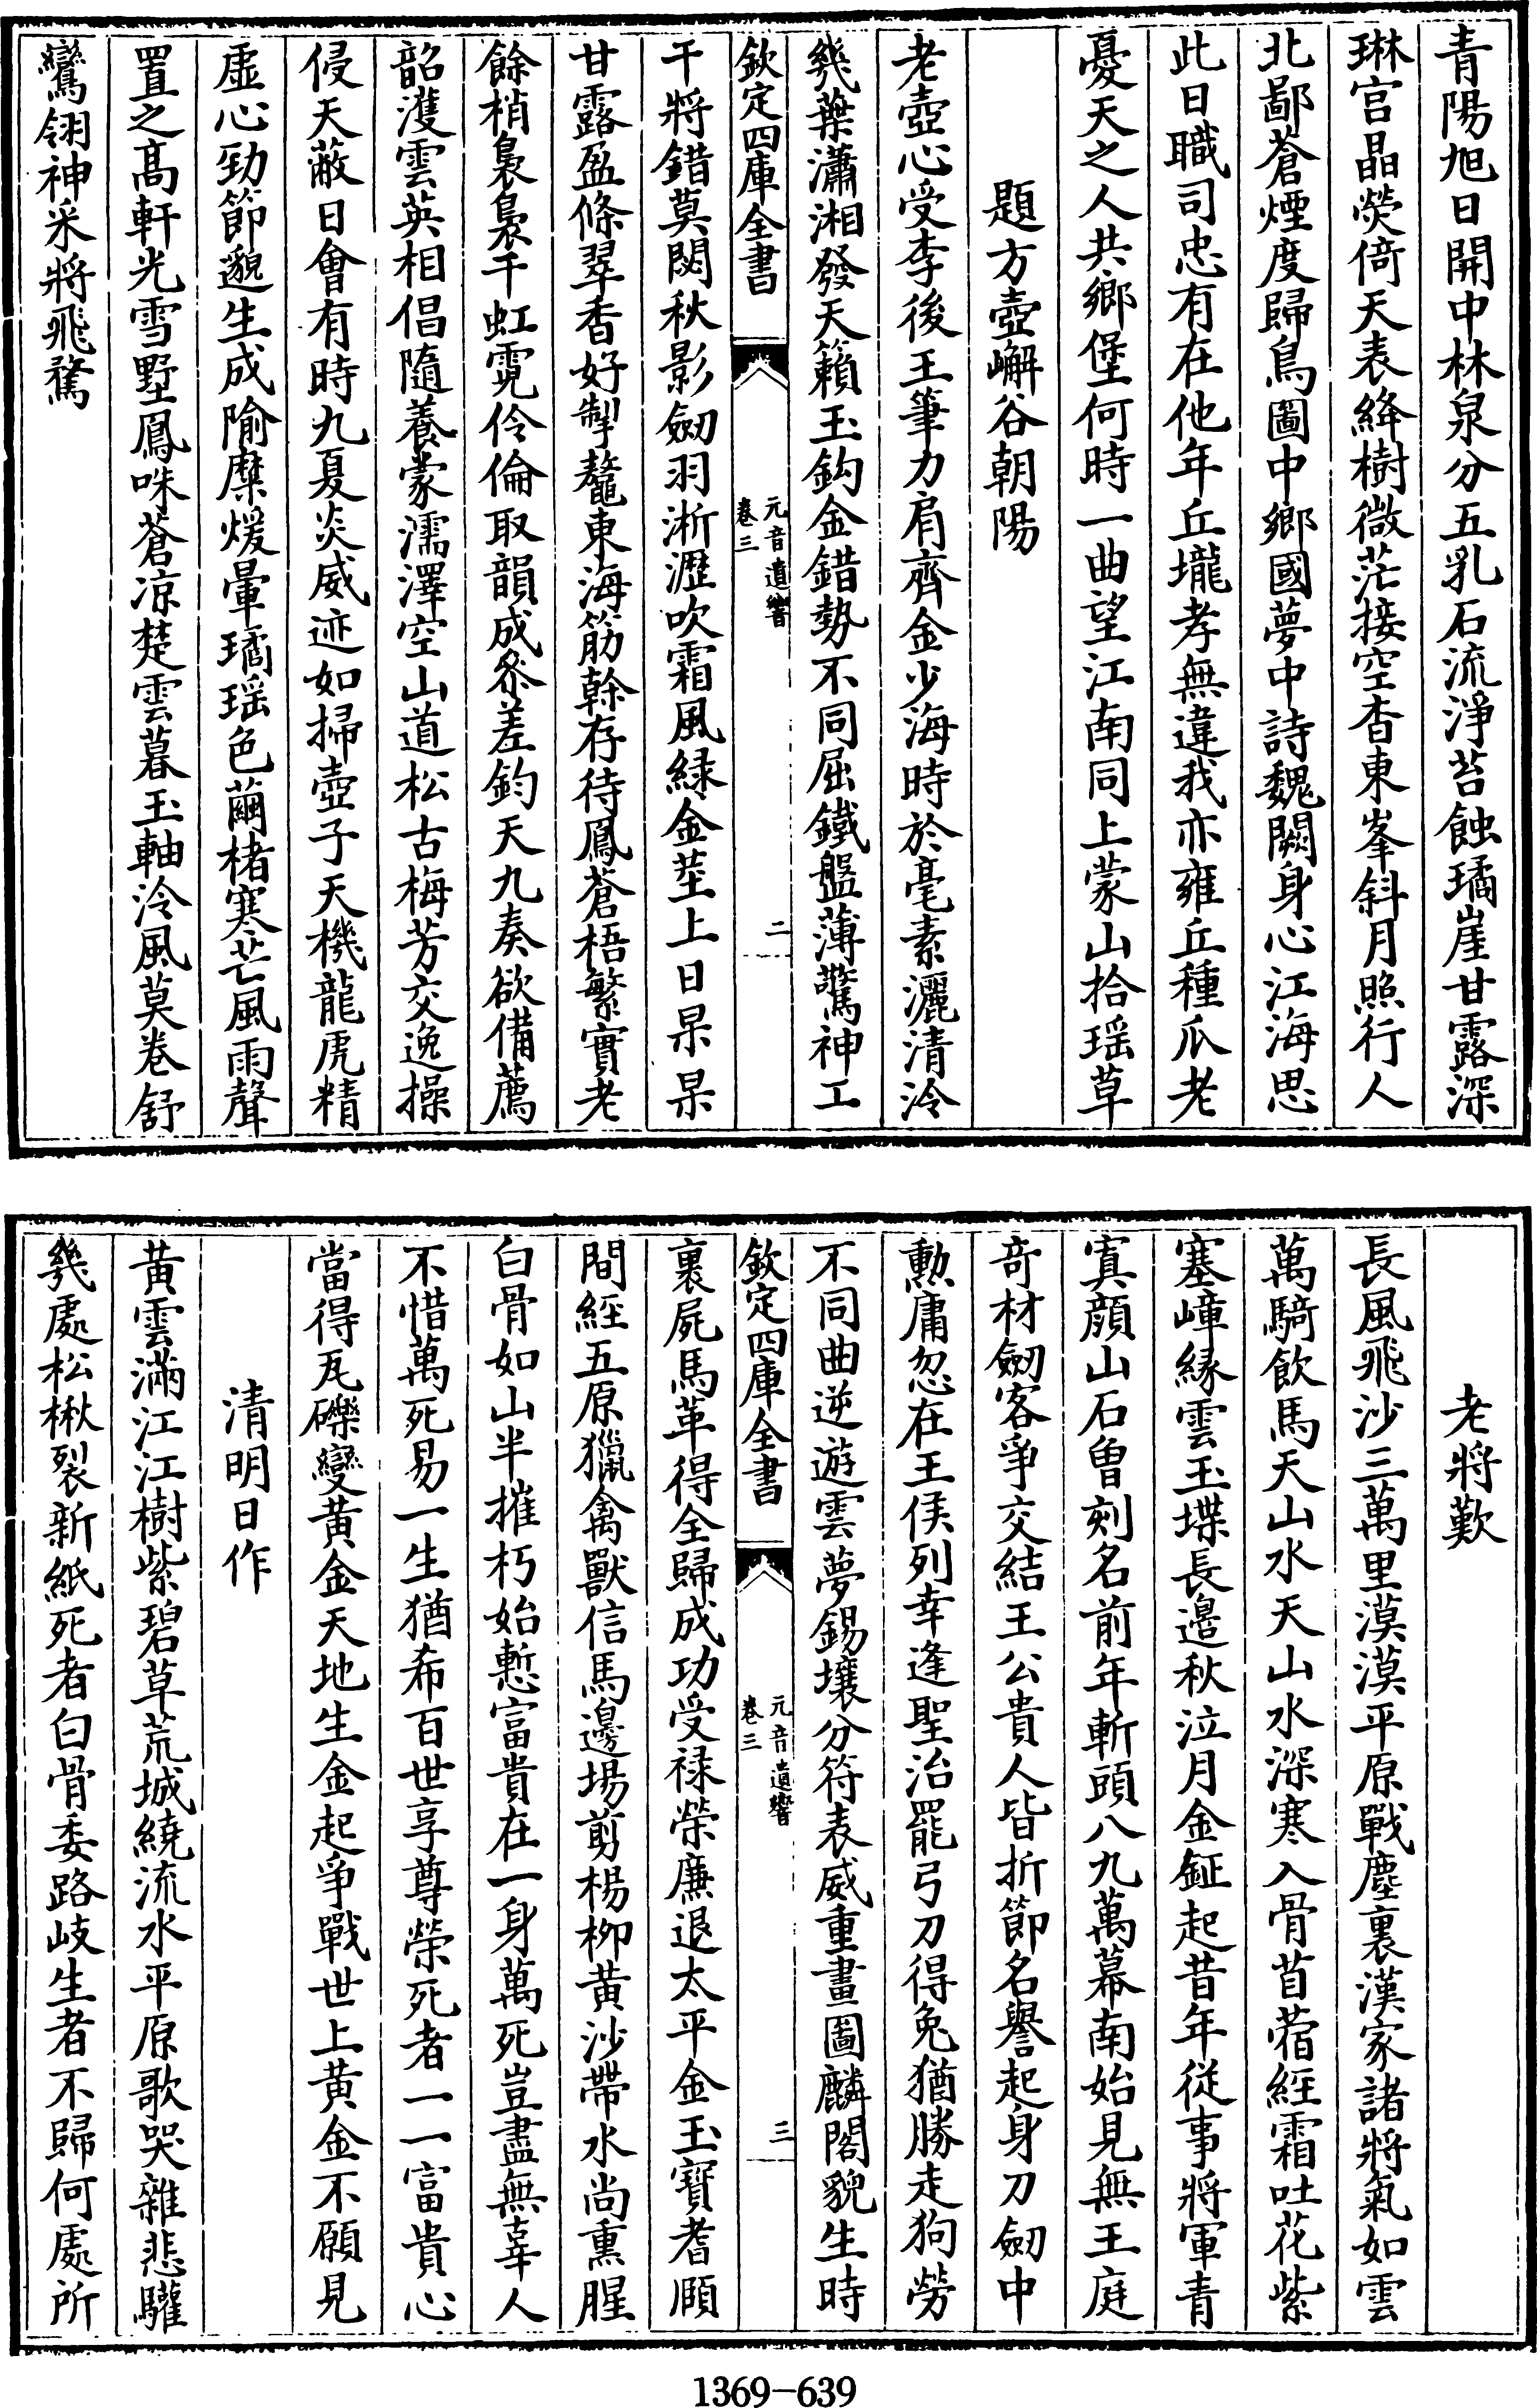 青陽旭日開中林泉分五乳石流淨苔蝕璚崖甘露深
琳宫晶熒倚天表絳樹微茫接空杳東峯斜月照行人
北鄙蒼煙度歸鳥圖中鄉國夢中詩魏闕身心江海思
此日職司忠有在他年丘壠孝無違我亦雍丘種瓜老
憂天之人共鄉堡何時一曲望江南同上蒙山拾瑶草
題方壺嶰谷朝陽
老壺心受李後王筆力肩齊金少海時於毫素灑清泠
幾葉瀟湘發天籟玉鈎金錯勢不同屈鐵盤薄驚神工
欽定四庫全書
元音遺響
卷三
二
干將錯莫閟秋影劒羽淅瀝吹霜風緑金莖上日杲杲
甘露盈條翠香好掣鼇東海筋幹存待鳳蒼梧繁實老
餘梢裊裊干虹霓伶倫取韻成叅差鈞天九奏欲備薦
韶濩雲英相倡隨養蒙濡澤空山道松古梅芳交逸操
侵天蔽日會有時九夏炎威迹如掃壺子天機龍虎精
虚心勁節邈生成隃糜煖暈璚瑶色繭楮寒芒風雨聲
置之髙軒光雪墅鳳咮蒼凉楚雲暮玉軸泠風莫卷舒
鸞翎神采將飛騖
老將歎
長風飛沙三萬里漠漠平原戰塵裏漢家諸將氣如雲
萬騎飲馬天山水天山水深寒入骨苜蓿經霜吐花紫
塞嶂縁雲玉堞長邉秋泣月金鉦起昔年從事將軍青
寘顔山石曽刻名前年斬頭八九萬幕南始見無王庭
竒材劒客爭交結王公貴人皆折節名譽起身刀劒中
勲庸忽在王侯列幸逢聖治罷弓刀得兔猶勝走狗勞
不同曲逆遊雲夢錫壤分符表威重畫圖麟閣貌生時
欽定四庫全書
元音遺響
卷三
三
裹屍馬革得全歸成功受禄榮廉退太平金玉寳耆頤
間經五原獵禽獸信馬邊場剪楊柳黄沙帶水尚熏腥
白骨如山半摧朽始慙富貴在一身萬死豈盡無辜人
不惜萬死易一生猶希百世享尊榮死者一一富貴心
當得瓦礫變黄金天地生金起爭戰世上黄金不願見
清明日作
黄雲滿江江樹紫碧草荒城繞流水平原歌哭雜悲驩
幾處松楸裂新紙死者白骨委路岐生者不歸何處所
1369-639